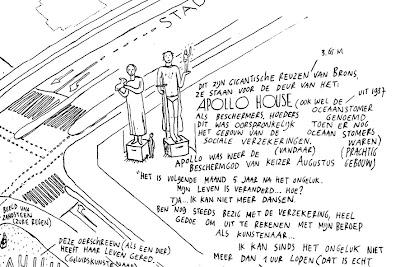 STAD
3.65 M
DIT ZIJN GIGANTISCHE REUZEN VAN BRONS,
ZE STAAN VOOR DE DEUR VAN HET:
APOLLO HOUSE (OOK WEL DE OCEAANSTOMER UIT 1937
ALS BESCHERMERS, HOEDERS GENOEMD
DIT WAS OORSPRONKELIJK TOEN ER NOG
HET GEBOUW VAN DE OCEAAN STOMERS
SOCIALE VERZEKERINGEN. WAREN)
(VANDAAR) (PRACHTIG
APOLLO WAS WEER DE
BESCHERMGOD VAN KEIZER AUGUSTUS GEBOUW)
"HET IS VOLGENDE MAAND 5 JAAR NA HET ONGELUK.
MIJN LEVEN IS VERANDERD... HOE?
TJA... IK KAN NIET MEER DANSEN.
BEN NOG STEEDS BEZIG MET DE VERZEKERING, HEEL
GEDOE OM UIT TE REKENEN MET MIJN BEROEP
ALS KUNSTENAAR...
IK KAN SINDS HET ONGELUK NIET
MEER DAN 1 UUR LOPEN (DAT IS ECHT
BEELD VAN
ZANDSTEEN
(ZURE REGEN)
DEZE OERSCHREEUW (ALS EEN DIER)
HEEFT HAAR LEVEN GERED.